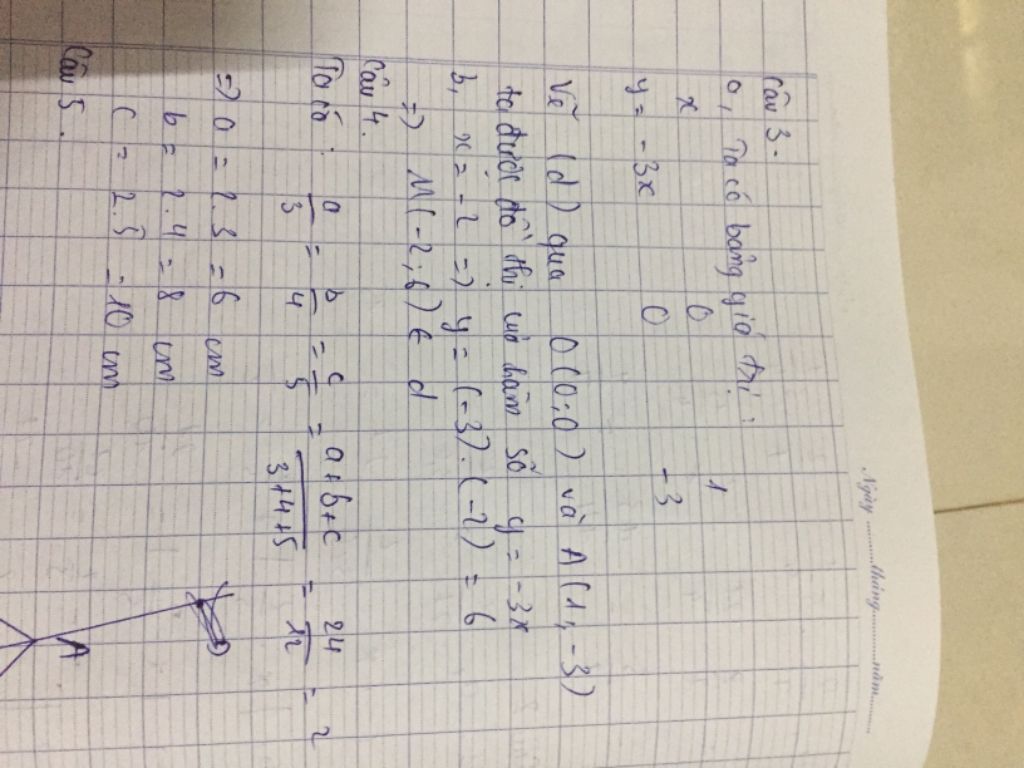 Ngày ..........tháng..........năm..........
Câu 3.
a, Ta có bảng giá trị:
x 0 1
y = -3x 0 -3
Vẽ (d) qua O(0;0) và A(1;-3)
ta được đồ thị của hàm số y = -3x
b, x = -2 => y = (-3).(-2) = 6
=> M(-2;6) ∈ d
Câu 4.
Ta có: a/3 = b/4 = c/5 = a+b+c/3+4+5 = 24/12 = 2
=> a = 2.3 = 6 cm
b = 2.4 = 8 cm
c = 2.5 = 10 cm
Câu 5.
A